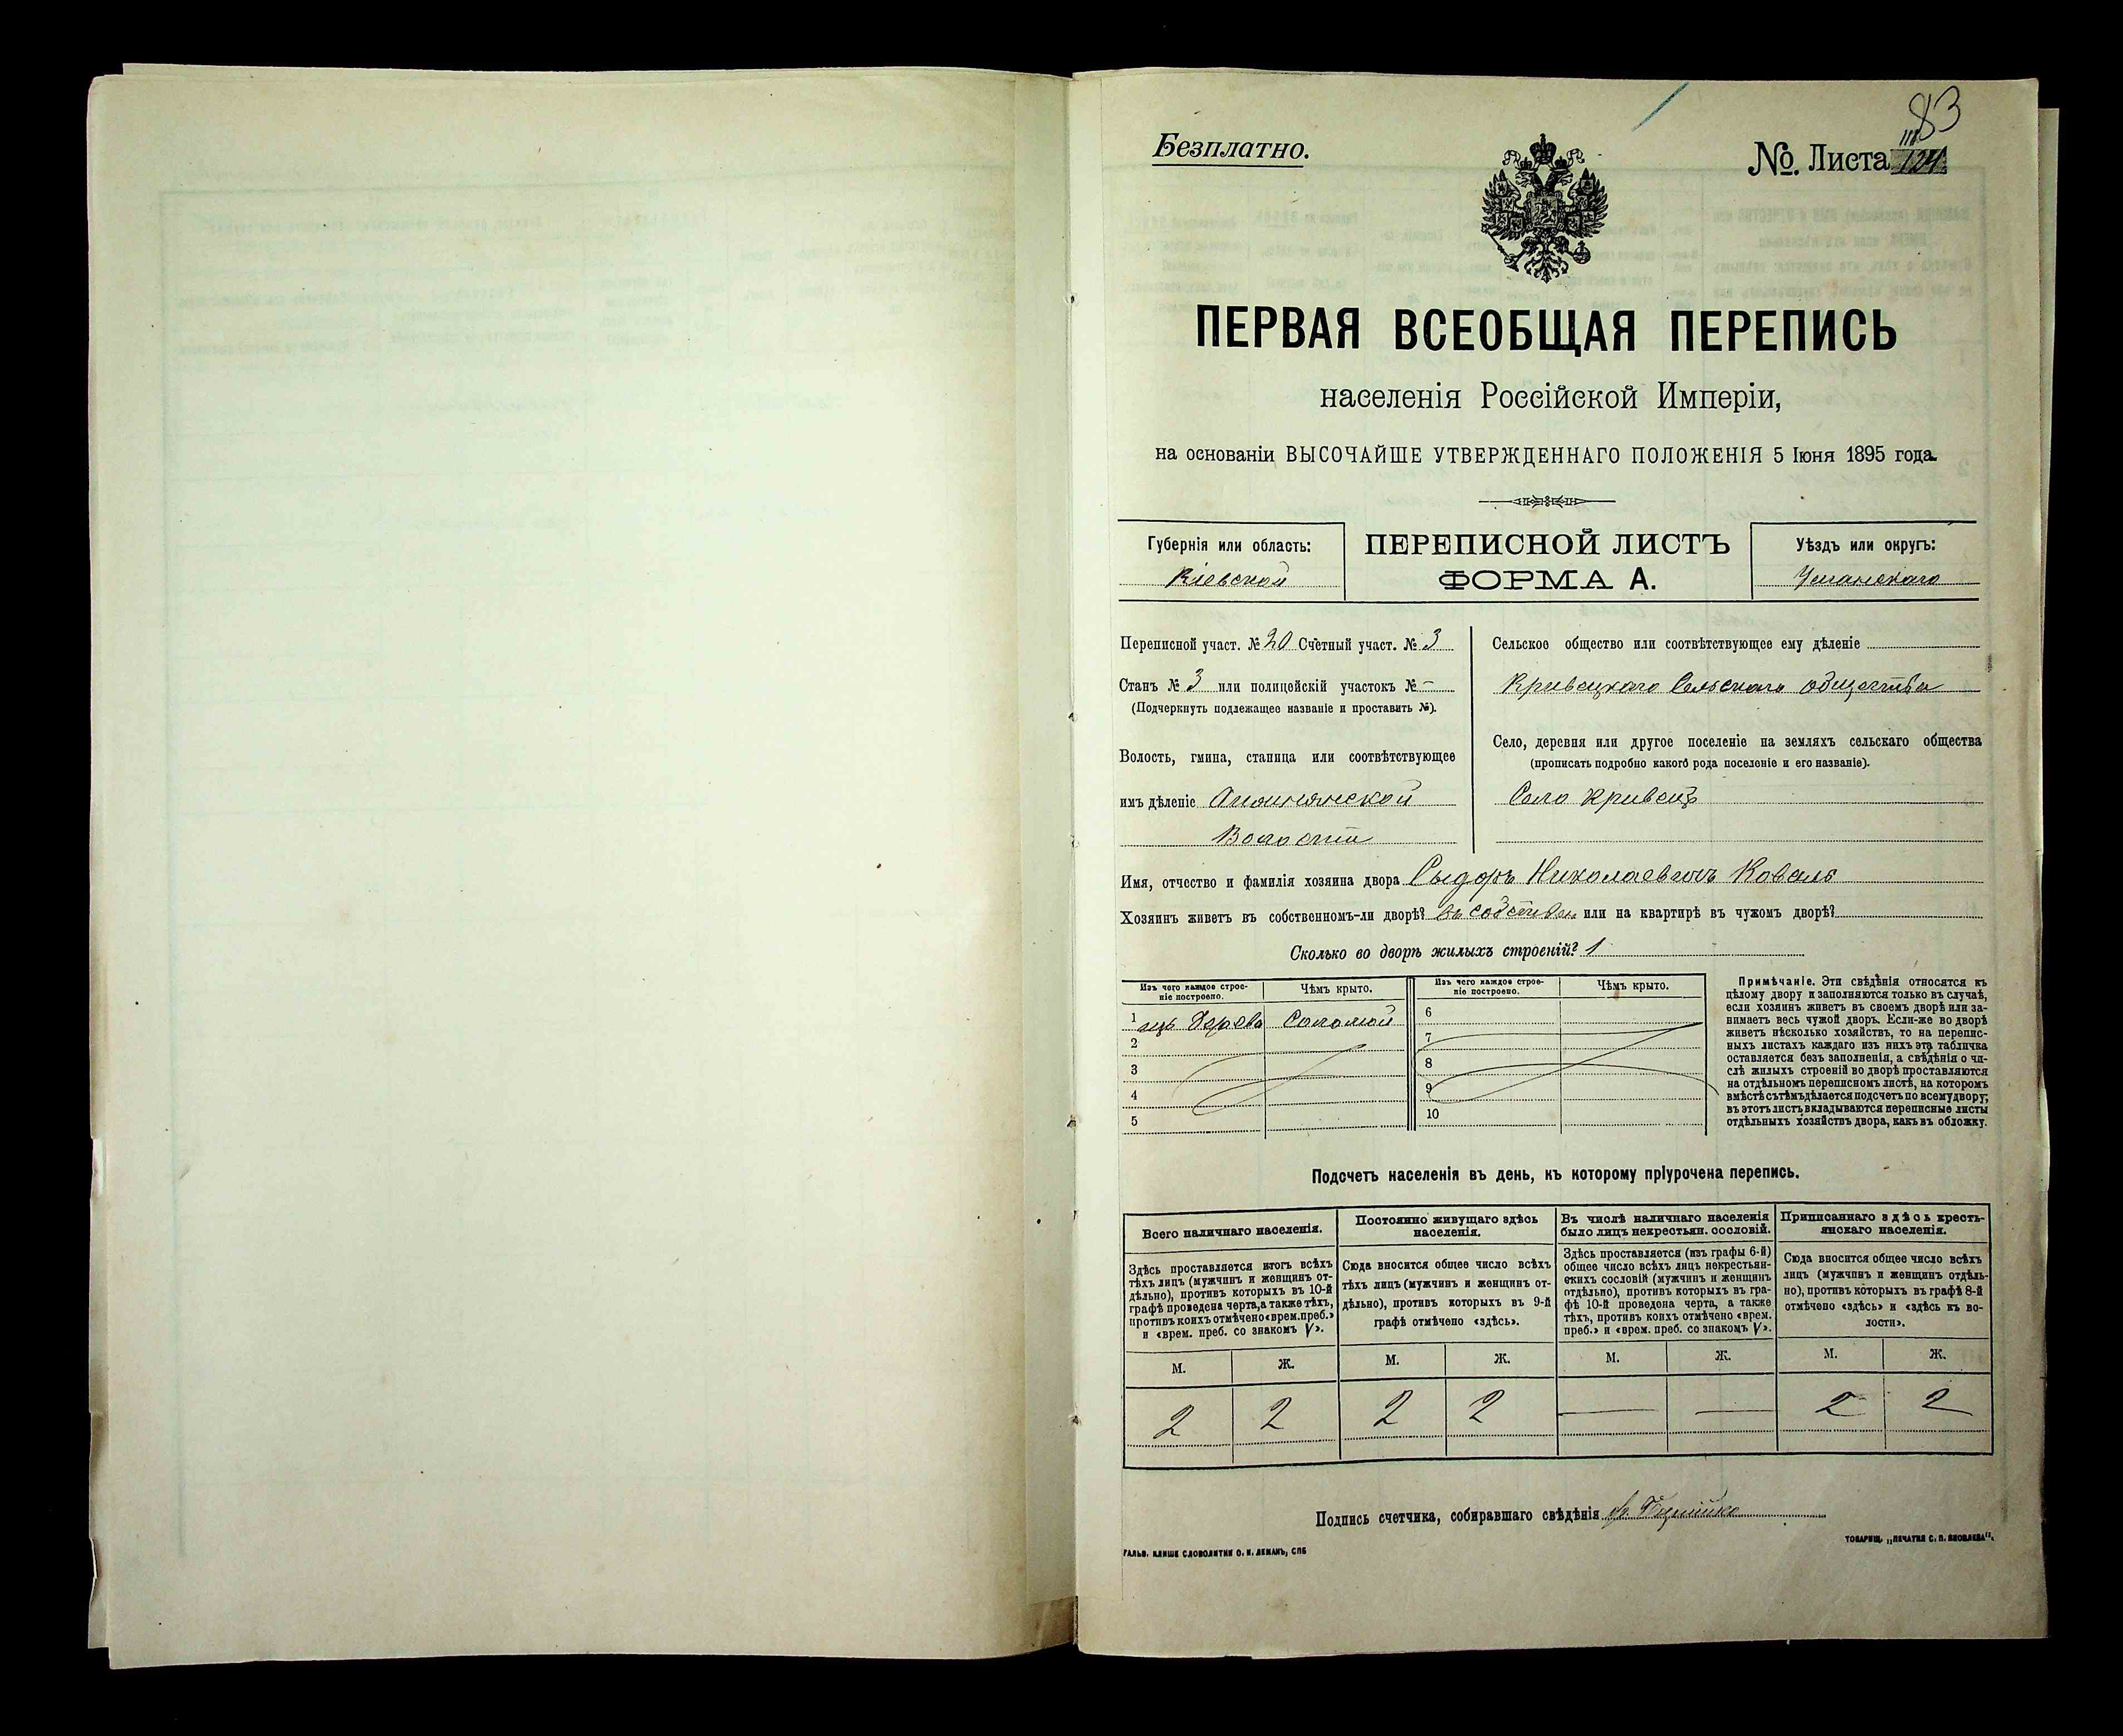 83
Безплатно.
№. Листа 118 124
ПЕРВАЯ ВСЕОБЩАЯ ПЕРЕПИСЬ
населенія Россійской Имперіи,
на основаніи ВЫСОЧАЙШЕ УТВЕРЖДЕННАГО ПОЛОЖЕНІЯ 5 Іюня 1895 года.
Губернія или область:
Кіевской
ПЕРЕПИСНОЙ ЛИСТЪ
ФОРМА А.
Уѣздъ или округъ:
Уманскаго
Переписной участ. № 20 Счетный участ. № 3
Станъ № 3 или полицейскій участокъ № –
(Подчеркнуть подлежащее названіе и проставить №).
Волость, гмина, станица или соотвѣтствующее
имъ дѣленіе
Волости
Сельское общество или соотвѣтствующее ему дѣленіе
Кривецкаго Сельскаго общества
Село, деревня или другое поселеніе на земляхъ сельскаго общества
(прописать подробно какого рода поселеніе и его названіе).
Село Кривецъ
Имя, отчество и фамилія хозяина двора Сыдоръ Николаевичъ Коваль
Хозяинъ живетъ въ собственномъ-ли дворѣ? въ собствен или на квартирѣ въ чужомъ дворѣ?
Сколько во дворѣ жилыхъ строеній? 1
Изъ чего каждое строе-
ніе построено.
Чѣмъ крыто.
1 изъ дерева Соломой
2
3
4
5
Изъ чего каждое строе-
ніе построено.
Чѣмъ крыто.
6
7
8
9
10
Примѣчаніе. Эти свѣдѣнія относятся къ
цѣлому двору и заполняются только въ случаѣ,
если хозяинъ живетъ въ своемъ дворѣ или за-
нимаетъ весь чужой дворъ. Если-же во дворѣ
живетъ нѣсколько хозяйствъ, то на перепис-
ныхъ листахъ каждаго изъ нихъ эта табличка
оставляется безъ заполненія, а свѣдѣнія о чи-
слѣ жилыхъ строеній во дворѣ проставляются
на отдѣльномъ переписномъ листѣ, на которомъ
вмѣстѣ съ тѣмъ дѣлается подсчетъ по всему двору;
въ этотъ листъ вкладываются переписные листы
отдѣльныхъ хозяйствъ двора, какъ въ обложку.
Подсчетъ населенія въ день, къ которому пріурочена перепись.
Всего наличнаго населенія.
Здѣсь проставляется итогъ всѣхъ
тѣхъ лицъ (мужчинъ и женщинъ от-
дѣльно), противъ которыхъ въ 10-й
графѣ проведена черта, а также тѣхъ,
противъ коихъ отмѣчено «врем. преб.»
и «врем. преб. со знакомъ V».
М. Ж.
2 2
Постоянно живущаго здѣсь
населенія.
Сюда вносится общее число всѣхъ
тѣхъ лицъ (мужчинъ и женщинъ от-
дѣльно), противъ которыхъ въ 9-й
графѣ отмѣчено «здѣсь».
М. Ж.
2 2
Въ числѣ наличнаго населенія
было лицъ некрестьян. сословій.
Здѣсь проставляется (изъ графы 6-й)
общее число всѣхъ лицъ некрестьян-
скихъ сословій (мужчинъ и женщинъ
отдѣльно), противъ которыхъ въ гра-
фѣ 10-й проведена черта, а также
тѣхъ, противъ коихъ отмѣчено «врем.
преб.» и «врем. преб. со знакомъ V».
М. Ж.
— —
Приписаннаго здѣсь кресть-
янскаго населенія.
Сюда вносится общее число всѣхъ
лицъ (мужчинъ и женщинъ отдѣль-
но), противъ которыхъ въ графѣ 8-й
отмѣчено «здѣсь» и «здѣсь къ во-
лости».
М. Ж.
2 2
Подпись счетчика, собиравшаго свѣдѣнія
ГАЛЬВ. КЛИШЕ СЛОВОЛИТНИ О. И. ЛЕМАНЪ, СПБ
ТОВАРИЩ. „ПЕЧАТНЯ С. П. ЯКОВЛЕВА".